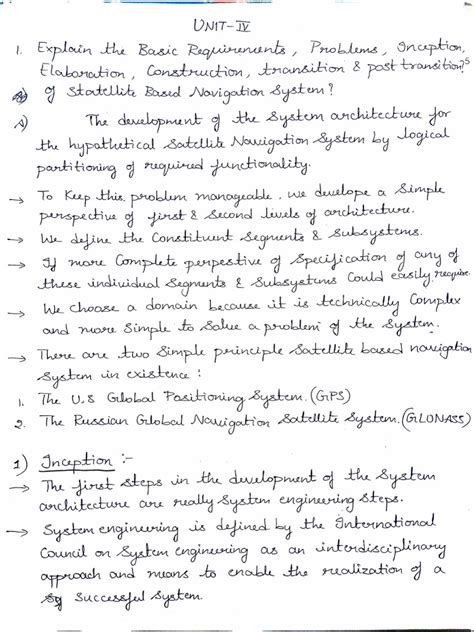 UNIT-IV
1. Explain the Basic Requirements, Problems, Inception,
Elaboration, Construction, transition & post transition?s
of Statellite Based Navigation System?
A) The development of the System architecture for
the hypothetical Satellite Navigation System by logical
partitioning of required functionality.
→ To Keep this problem manageable, we develope a Simple
perspective of first & Second levels of architecture.
→ We define the Constituent Segments & Subsystems.
→ If more Complete perpestive of Specification of any of
these individual Segments & Subsystems Could easily require.
→ We choose a domain because it is technically Complex
and more Simple to Solve a problem of the System.
→ There are two Simple principle Satellite based navigation
System in existence :
1. The U.S Global Positioning System. (GPS)
2. The Russian Global Navigation Satellite System. (GLONASS)
1) Inception :-
→ The first Steps in the development of the System
architecture are really System engineering Steps.
→ System engineering is defined by the International
Council on System engineering as an interdisciplinary
approach and means to enable the realization of a
Successful System.